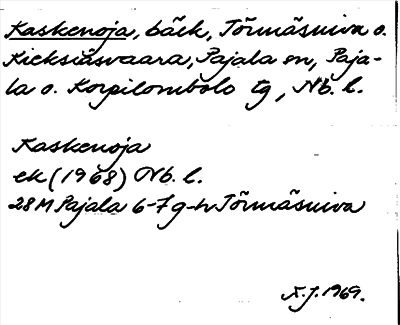 Kaskenoja, bäck, Törmäsniva o.
Kieksiäsvaara, Pajala sn, Paja-
la o. Korpilombolo tg, Nb. l.
Kaskenoja
ek (1968) Nb. l.
28M Pajala 6-7 g-h Törmäsniva
X.J. 1969.